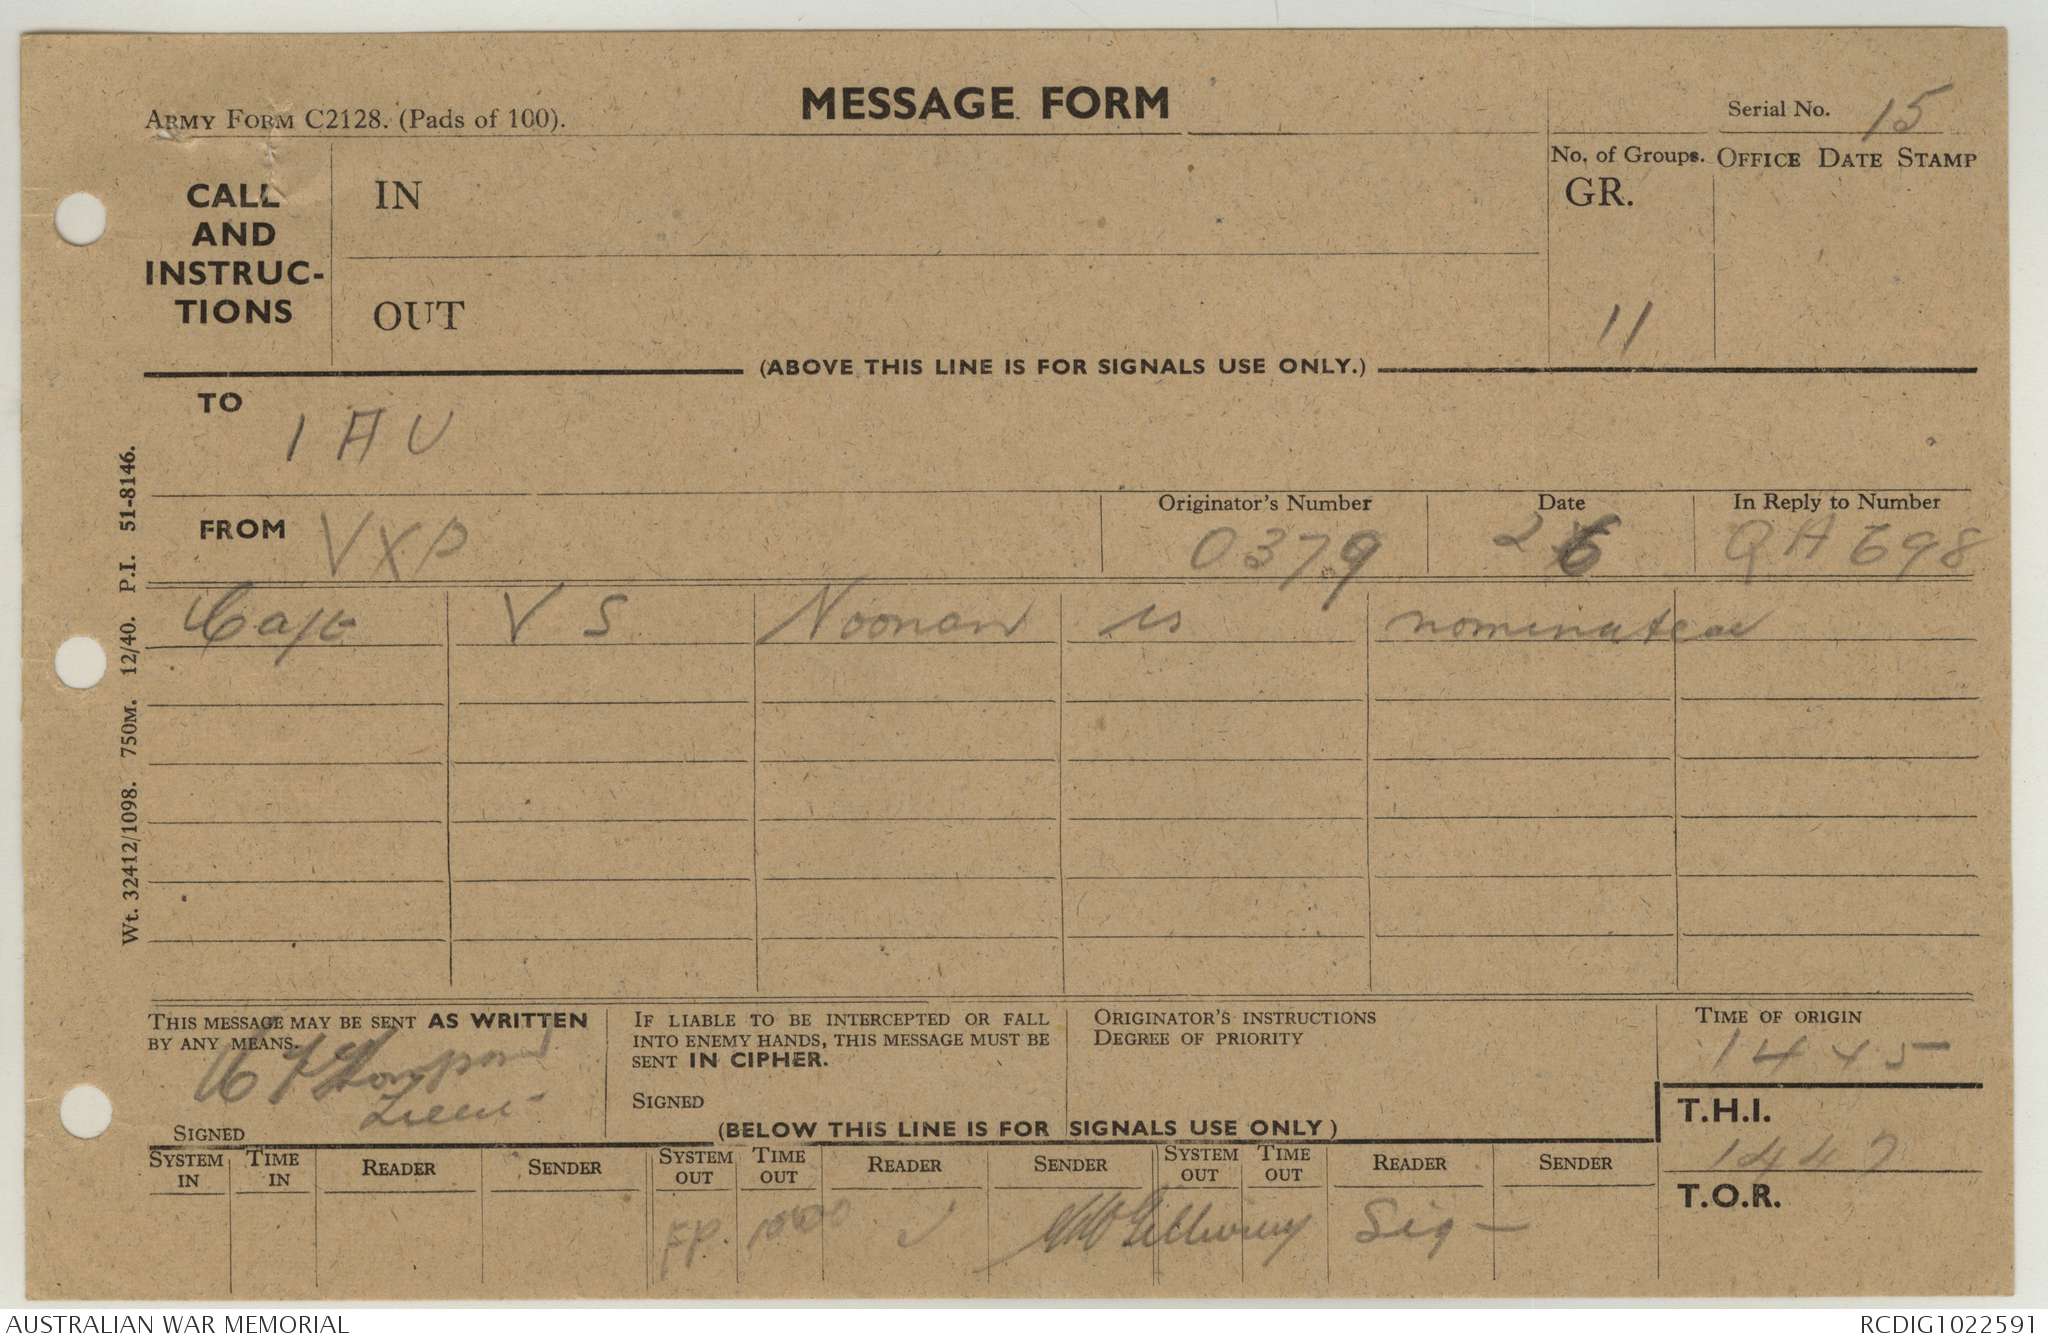 MESSAGE FORM
Army Form C2128. (Pads of 100).
Serial No. 15
No. of Groups. OFFICE DATE STAMP
GR.
11
CALL AND INSTRUC-TIONS
IN
OUT
(ABOVE THIS LINE IS FOR SIGNALS USE ONLY.)
TO
1 A U
Originator's Number Date In Reply to Number
FROM VXP 0379 26 QA 698
Capt V S Noonan is nominated
Wt. 32412/1098. 750M. 12/40. P.I. 51-8146.
THIS MESSAGE MAY BE SENT AS WRITTEN
BY ANY MEANS.
Lieut
SIGNED
IF LIABLE TO BE INTERCEPTED OR FALL
INTO ENEMY HANDS, THIS MESSAGE MUST BE
SENT IN CIPHER.
SIGNED
ORIGINATOR'S INSTRUCTIONS
DEGREE OF PRIORITY
TIME OF ORIGIN
1445
T.H.I.
1447
T.O.R.
(BELOW THIS LINE IS FOR SIGNALS USE ONLY)
SYSTEM IN TIME IN READER SENDER SYSTEM OUT TIME OUT READER SENDER SYSTEM OUT TIME OUT READER SENDER
Sig
AUSTRALIAN WAR MEMORIAL RCDIG1022591